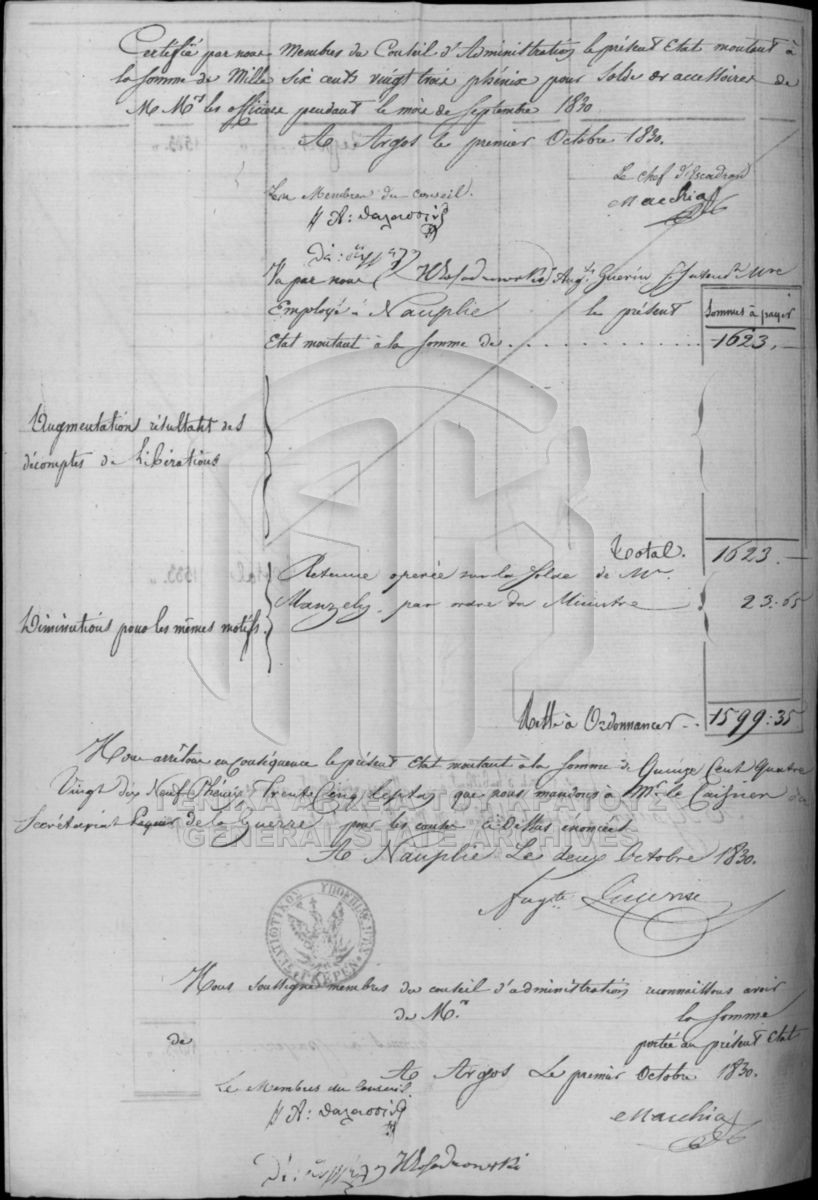 Certifié par nous Membres du Conseil d'Administration le présent Etat montant à
la somme de Mille six cents vingt trois phénix pour Solde et accessoires de
M Mrs les officiers pendant le mois de Septembre 1830
A Argos le premier Octobre 1830.
Le chef d'Escadron
Les Membres du Conseil.
Macchia
Vu par nous Augte Guerin
Employé à Nauplie le présent
Sommes à payer
Etat montant à la somme de 1623,—
Augmentations résultant des
décomptes de Libérations
Total. 1623 —
Retenue operée sur la solde de Mr
Manzely par ordre du Ministre 23:65
Diminutions pour les mêmes motifs.
Reste à Ordonnancer 1599:35
Nous arrêtons en conséquence le présent Etat montant à la somme de Quinze Cent Quatre
Vingt dix Neuf Phénix Trente Cinq Leptas que nous mandons à Mr le Caissier du
Secrétariat de la Guerre pour les causes ci Dessus énoncées
ΓΕΝΙΚΑ ΑΡΧΕΙΑ ΤΟΥ ΚΡΑΤΟΥΣ
GENERAL STATE ARCHIVES
A Nauplie Le deux Octobre 1830.
Augte Guerin
Nous soussignés membres du conseil d'administration reconnaissons avoir
de Mr la somme
de portée au présent Etat
A Argos Le premier Octobre 1830.
Le Membres du Conseil
Macchia